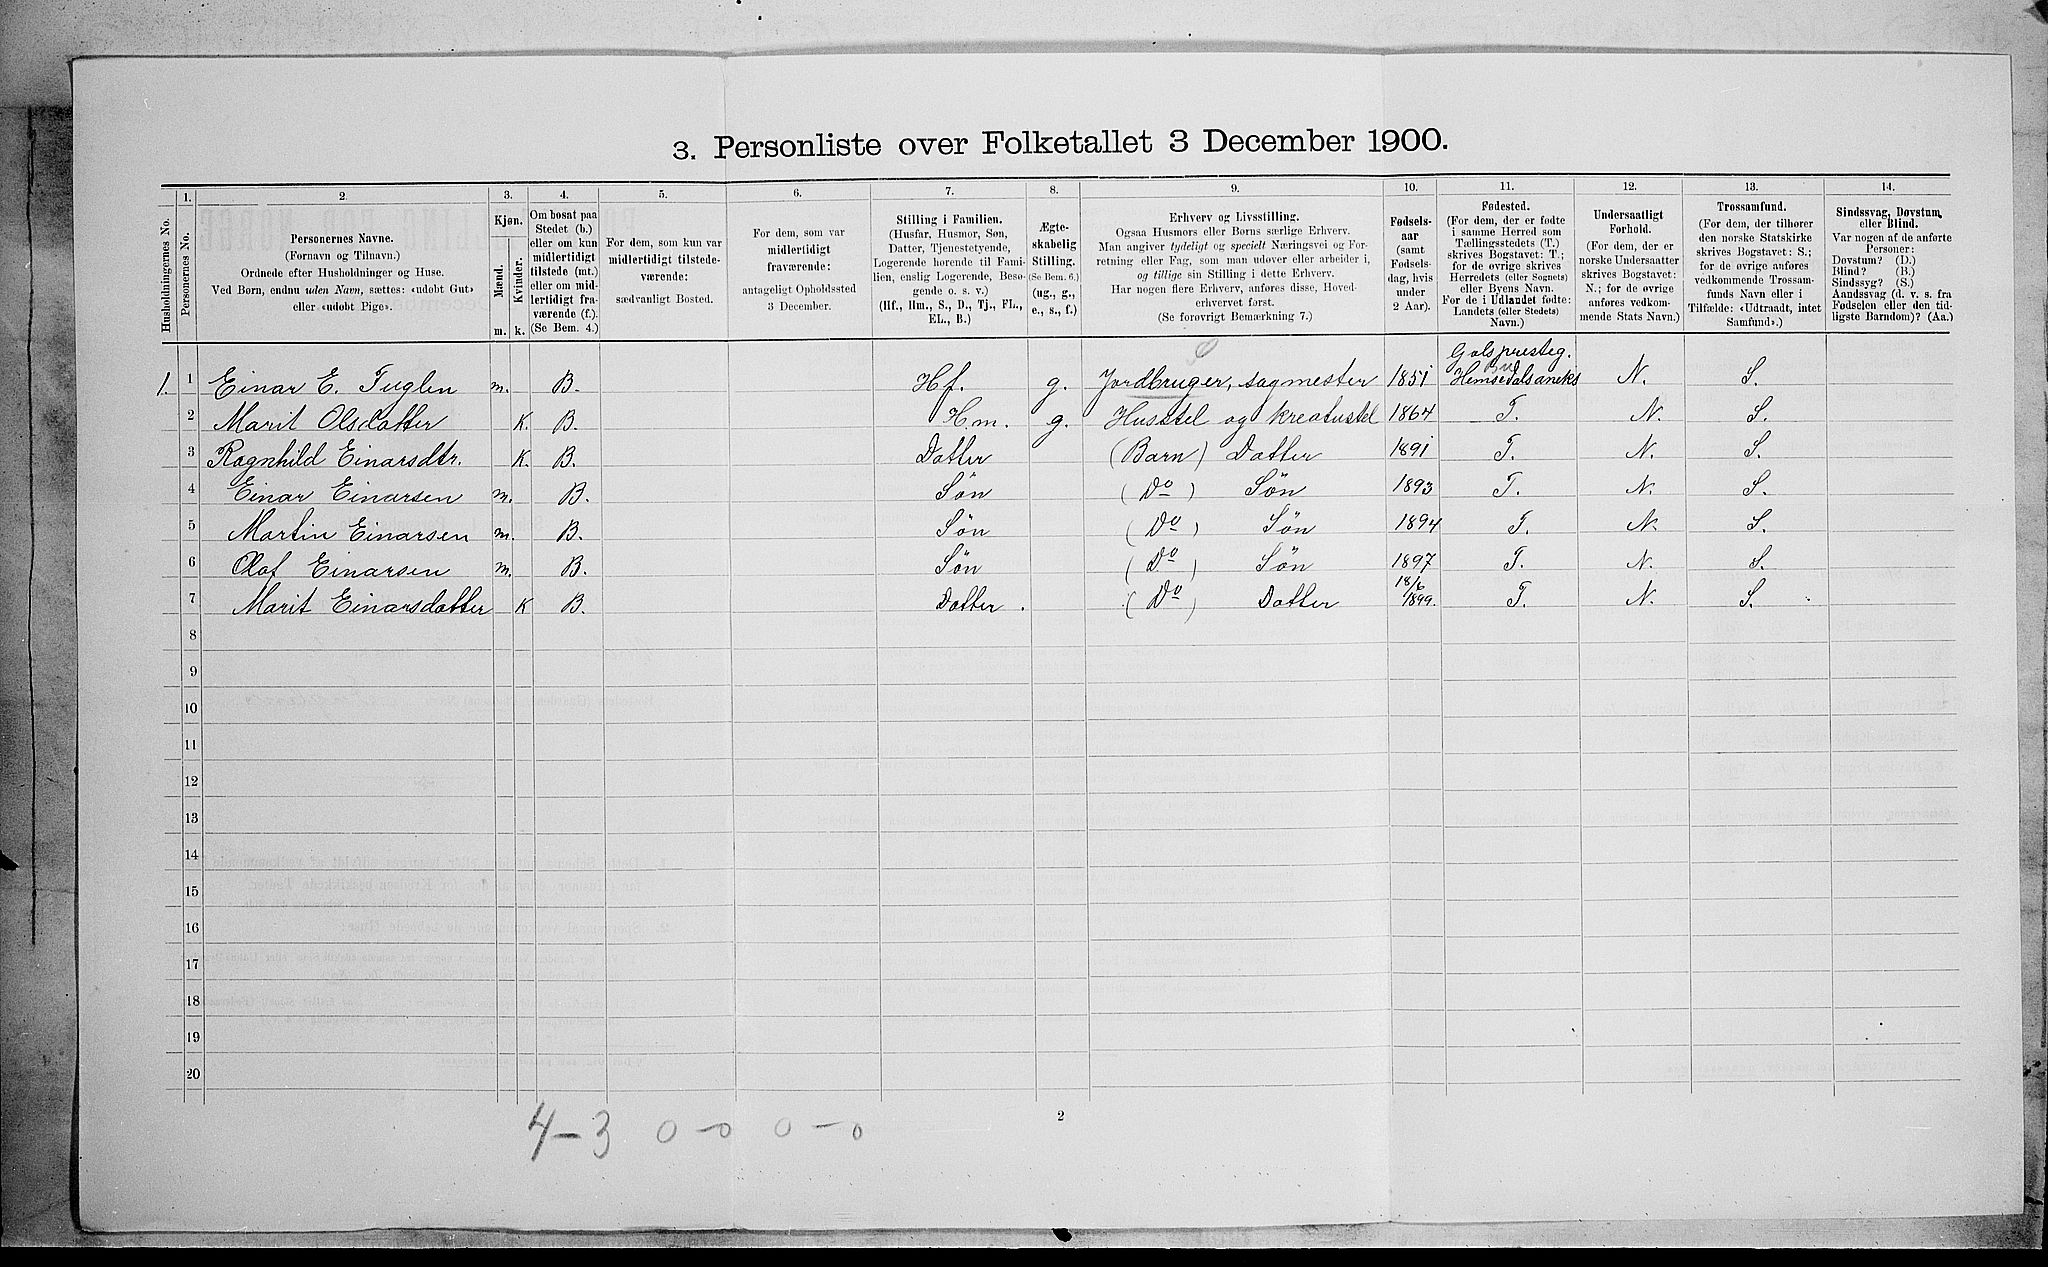 3. Personliste over Folketallet 3 December 1900.
1. 2. 3. 4. 5. 6. 7. 8. 9. 10. 11. 12. 13. 14.
Husholdningernes No.
Personernes No.
Personernes Navne.
(Fornavn og Tilnavn.)
Ordnede efter Husholdninger og Huse.
Ved Børn, endnu uden Navn, sættes: «udøbt Gut»
eller «udøbt Pige».
Kjøn.
Mænd.
Kvinder.
m. k.
Om bosat paa
Stedet (b.)
eller om kun
midlertidigt
tilstede (mt.)
eller om mid-
lertidigt fra-
værende (f.).
(Se Bem. 4.)
For dem, som kun var
midlertidigt tilstede-
værende:
sædvanligt Bosted.
For dem, som var
midlertidigt
fraværende:
antageligt Opholdssted
3 December.
Stilling i Familien.
(Husfar, Husmor, Søn,
Datter, Tjenestetyende,
Logerende hørende til Fami-
lien, enslig Logerende, Besø-
gende o. s. v.)
(Hf., Hm., S., D., Tj., FL.,
EL., B.)
Ægte-
skabelig
Stilling.
(Se Bem. 6.)
(ug., g.,
e., s., f.)
Erhverv og Livsstilling.
Ogsaa Husmors eller Børns særlige Erhverv.
Man angiver tydeligt og specielt Næringsvei og For-
retning eller Fag, som man udøver eller arbeider i,
og tillige sin Stilling i dette Erhverv.
Har nogen flere Erhverv, anføres disse, Hoved-
erhvervet først.
(Se forøvrigt Bemærkning 7.)
Fødsels-
aar
(samt
Fødsels-
dag, hvis
under
2 Aar).
Fødested.
(For dem, der er fødte
i samme Herred som
Tællingsstedets (T.)
skrives Bogstavet: T.;
for de øvrige skrives
Herredets (eller Sognets)
eller Byens Navn.
For de i Udlandet fødte:
Landets (eller Stedets)
Navn.)
Undersaatligt
Forhold.
(For dem, der er
norske Undersaatter
skrives Bogstavet:
N.; for de øvrige
anføres vedkom-
mende Stats Navn.)
Trossamfund.
(For dem, der tilhører
den norske Statskirke
skrives Bogstavet: S.;
for de øvrige anføres
vedkommende Trossam-
funds Navn eller i
Tilfælde: «Udtraadt, intet
Samfund».)
Sindssvag, Døvstum,
eller Blind.
Var nogen af de anførte
Personer:
Døvstum? (D.)
Blind? (B.)
Sindssyg? (S.)
Aandssvag (d. v. s. fra
Fødselen eller den tid-
ligste Barndom)? (Aa.)
Gols presteg.
Bu
1. 1 Einar E. Tuglen m. B. Hf. g. Jordbruger, sagmester 1851 Hemsedals aneks N. S.
2 Marit Olsdatter K. B. H.m. g. Husstel og kreaturstel 1864 T. N. S.
3 Ragnhild Einarsdtr. K. B. Datter (Barn) Datter 1891 T. N. S.
4 Einar Einarsen m. B. Søn (Do) Søn 1893 T. N. S.
5 Martin Einarsen m. B. Søn (Do) Søn 1894 T. N. S.
6 Olaf Einarsen m. B. Søn (Do) Søn 1897 T. N. S.
7 Marit Einarsdatter K B. Datter. (Do) Datter 18/6 1899. T. N. S.
8
9
10
11
12
13
14
15
16
17
18
19
20
2
4-3 0-0 0-0